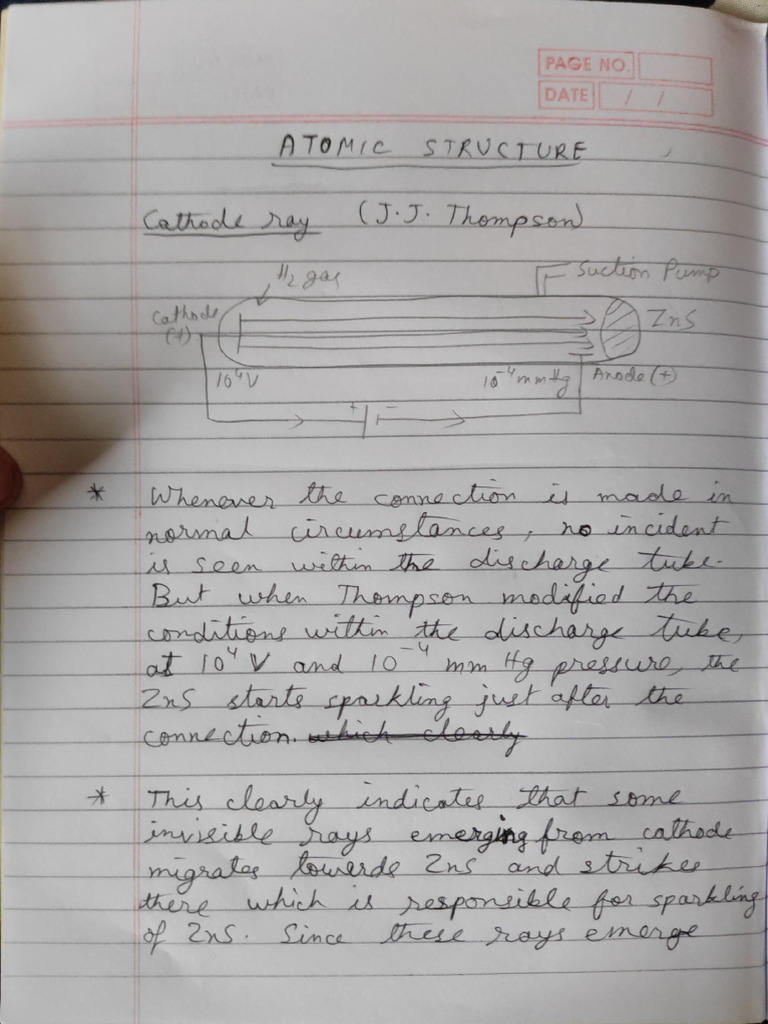 PAGE NO.
DATE / /
ATOMIC STRUCTURE
Cathode ray (J.J. Thompson)
H2 gas
Suction Pump
Cathode
(+)
ZnS
10⁴V
10⁻⁴ mm Hg
Anode (+)
+ -
* Whenever the connection is made in
normal circumstances, no incident
is seen within the discharge tube.
But when Thompson modified the
conditions within the discharge tube,
at 10⁴ V and 10⁻⁴ mm Hg pressure, the
ZnS starts sparkling just after the
connection. which clearly
* This clearly indicates that some
invisible rays emerging from cathode
migrates towards ZnS and strikes
there which is responsible for sparkling
of ZnS. Since these rays emerge